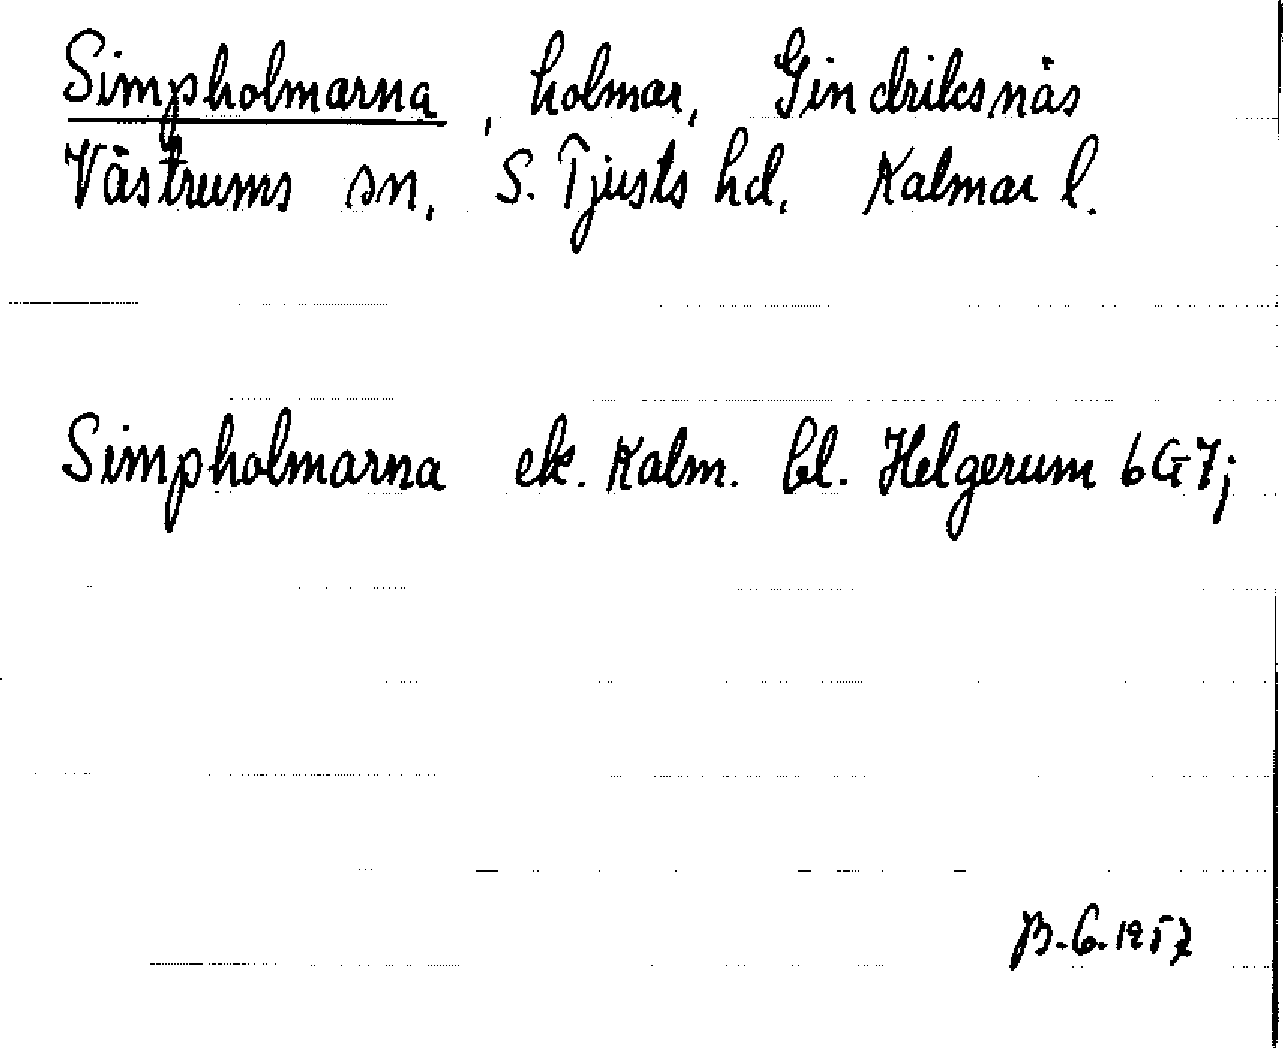 Simpholmarna, holmar, Gindriksnäs
Västrums sn, S. Tjusts hd, Kalmar l.
Simpholmarna ek. Kalm. bl. Helgerum 6G7;
B.G. 1957